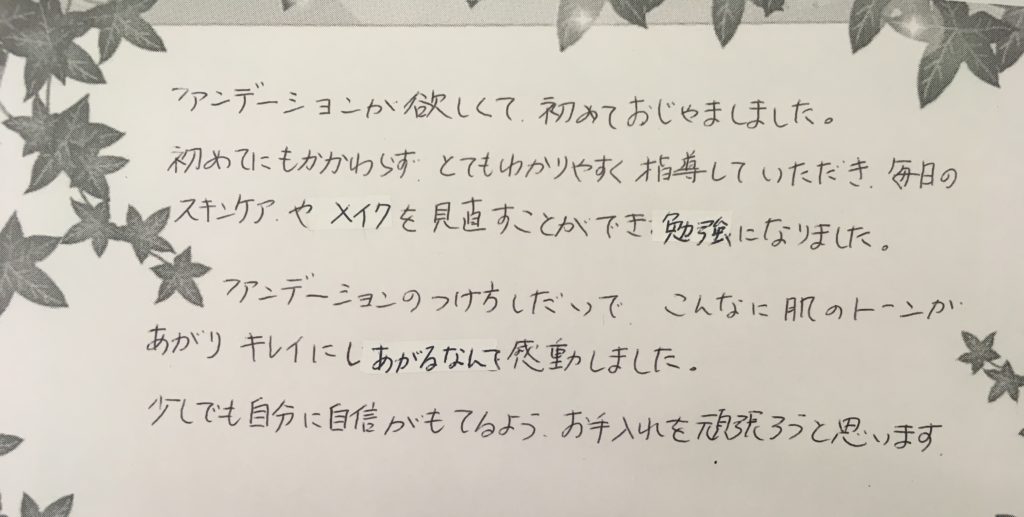 ファンデーションが欲しくて、初めておじゃましました。
初めてにもかかわらず とてもわかりやすく 指導していただき、毎日の
スキンケア、や メイクを見直すことができ、勉強になりました。
ファンデーションのつけ方しだいで こんなに肌のトーンが
あがり キレイにしあがるなんて 感動しました。
少しでも自分に自信がもてるよう、お手入れを頑張ろうと思います